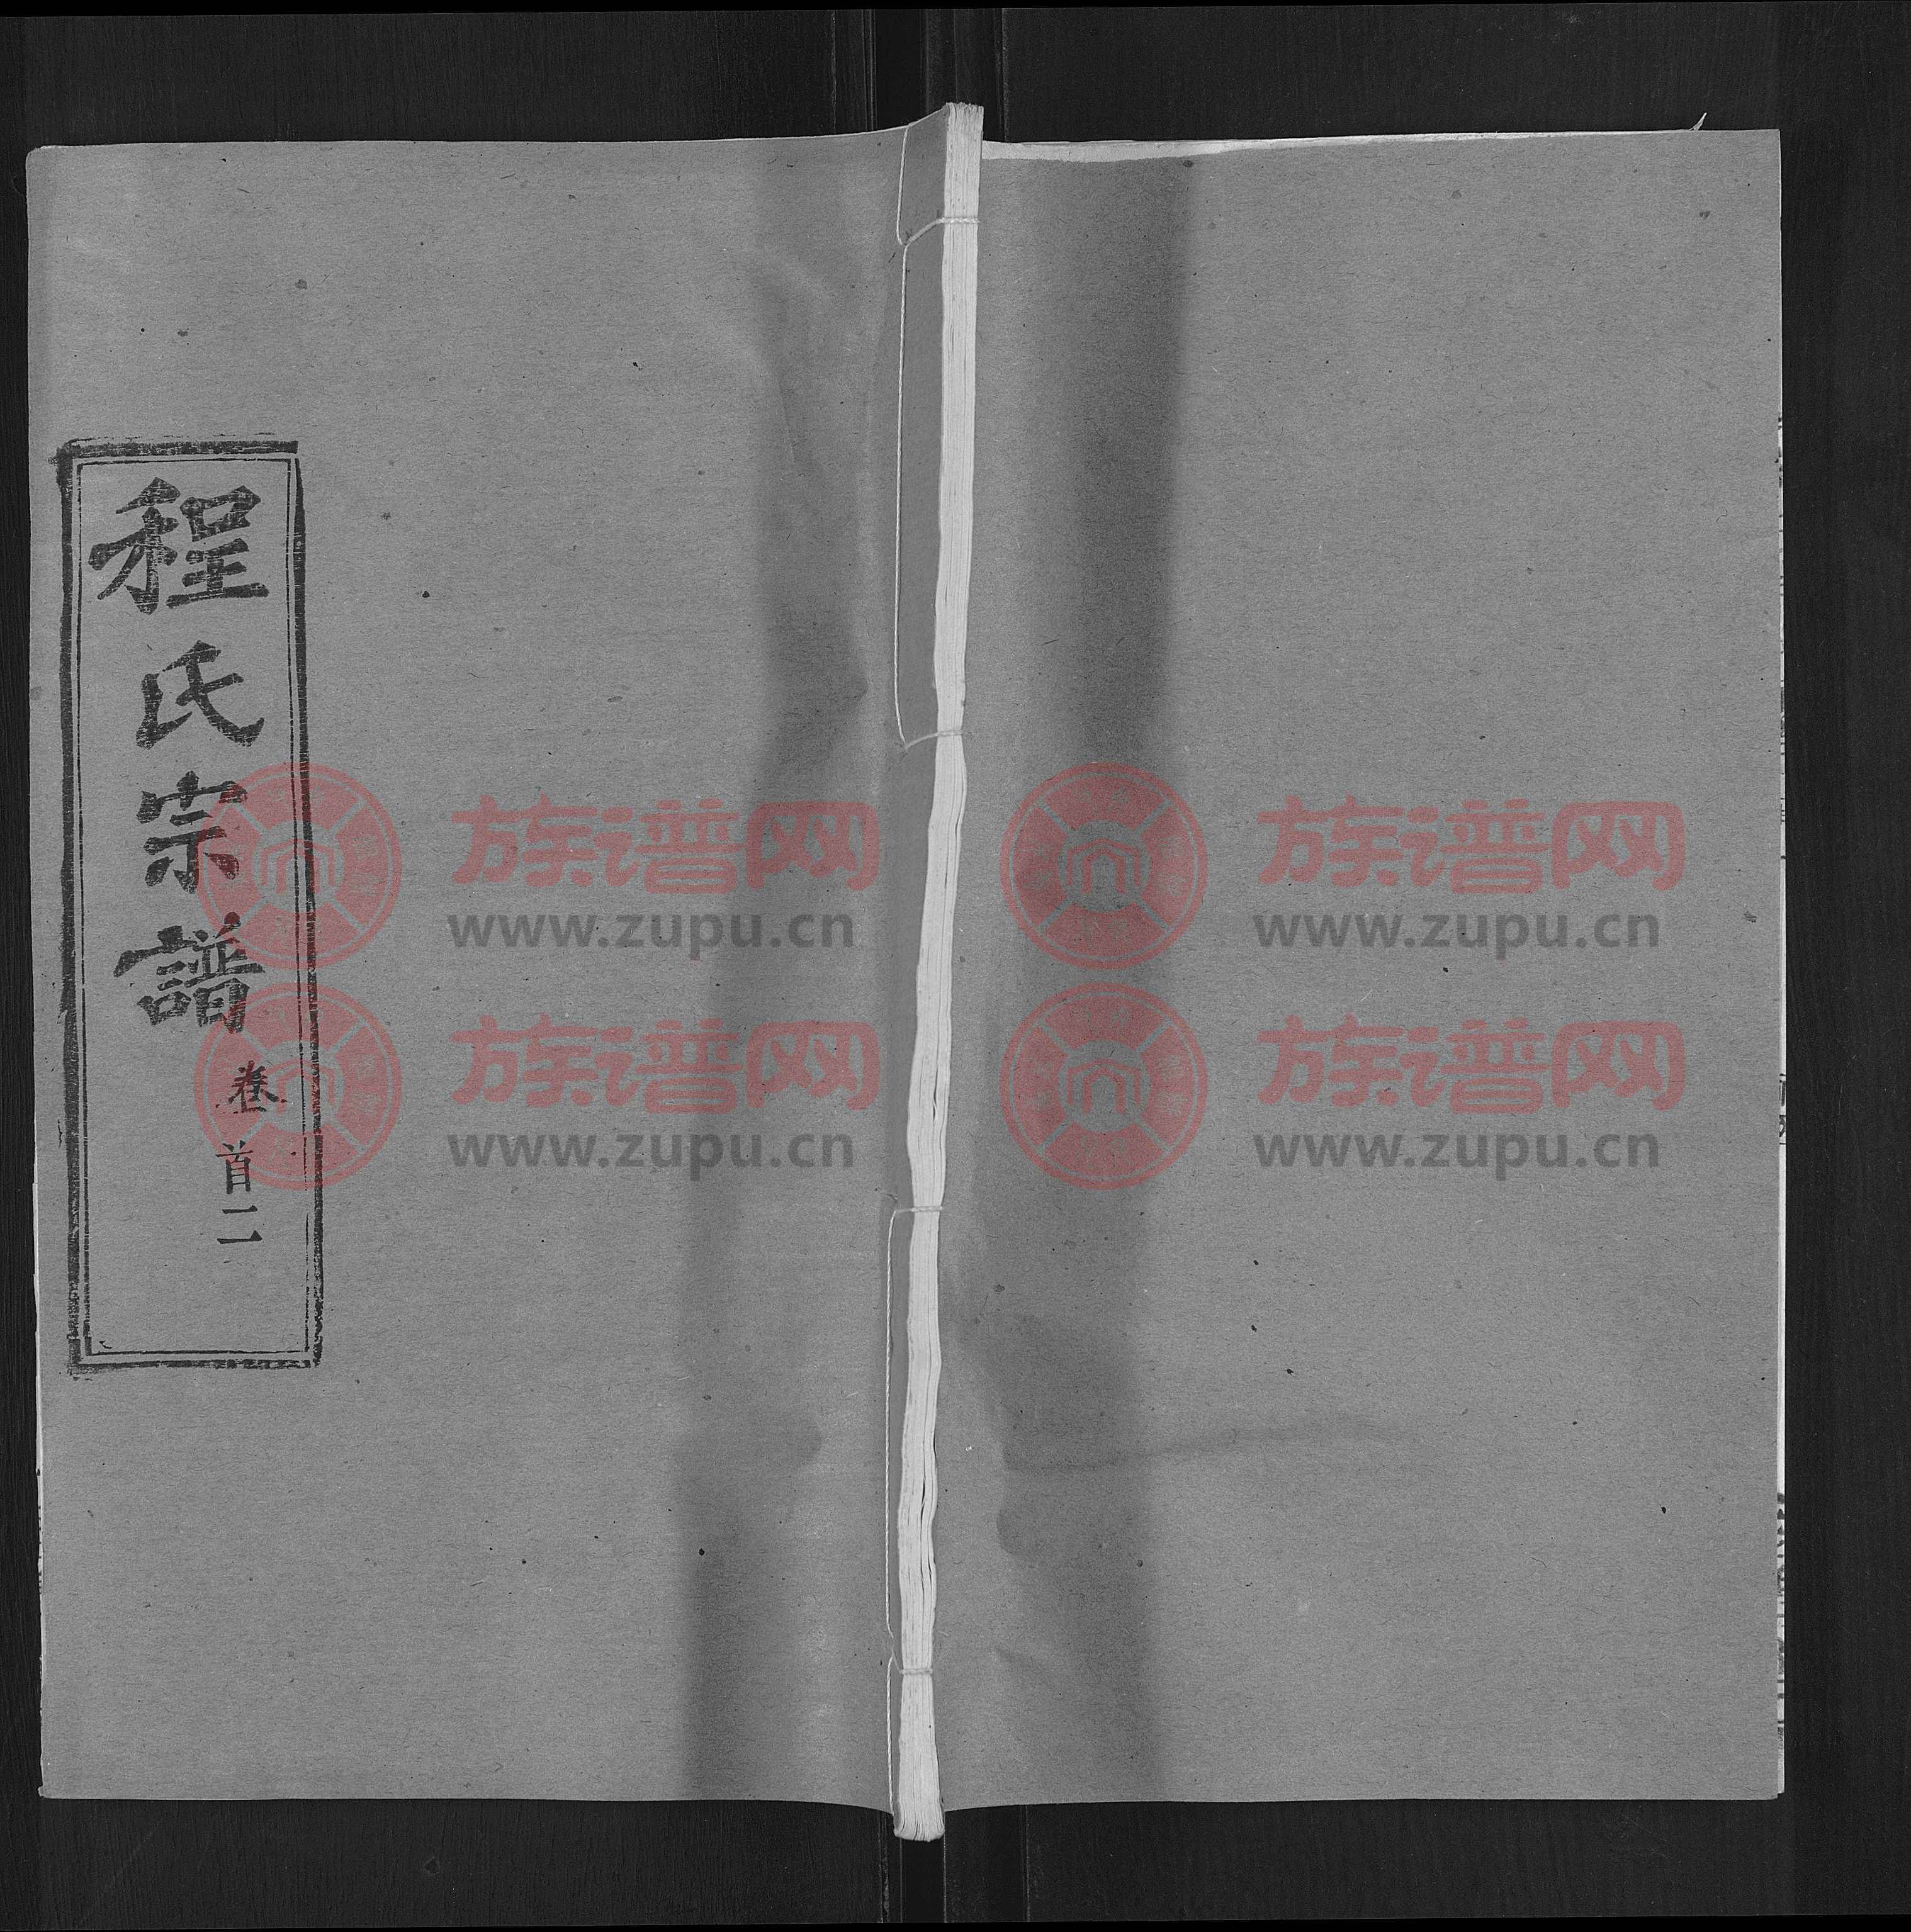 程氏宗譜
卷首二
族谱网
www.zupu.cn
族谱网
www.zupu.cn
族谱网
www.zupu.cn
族谱网
www.zupu.cn